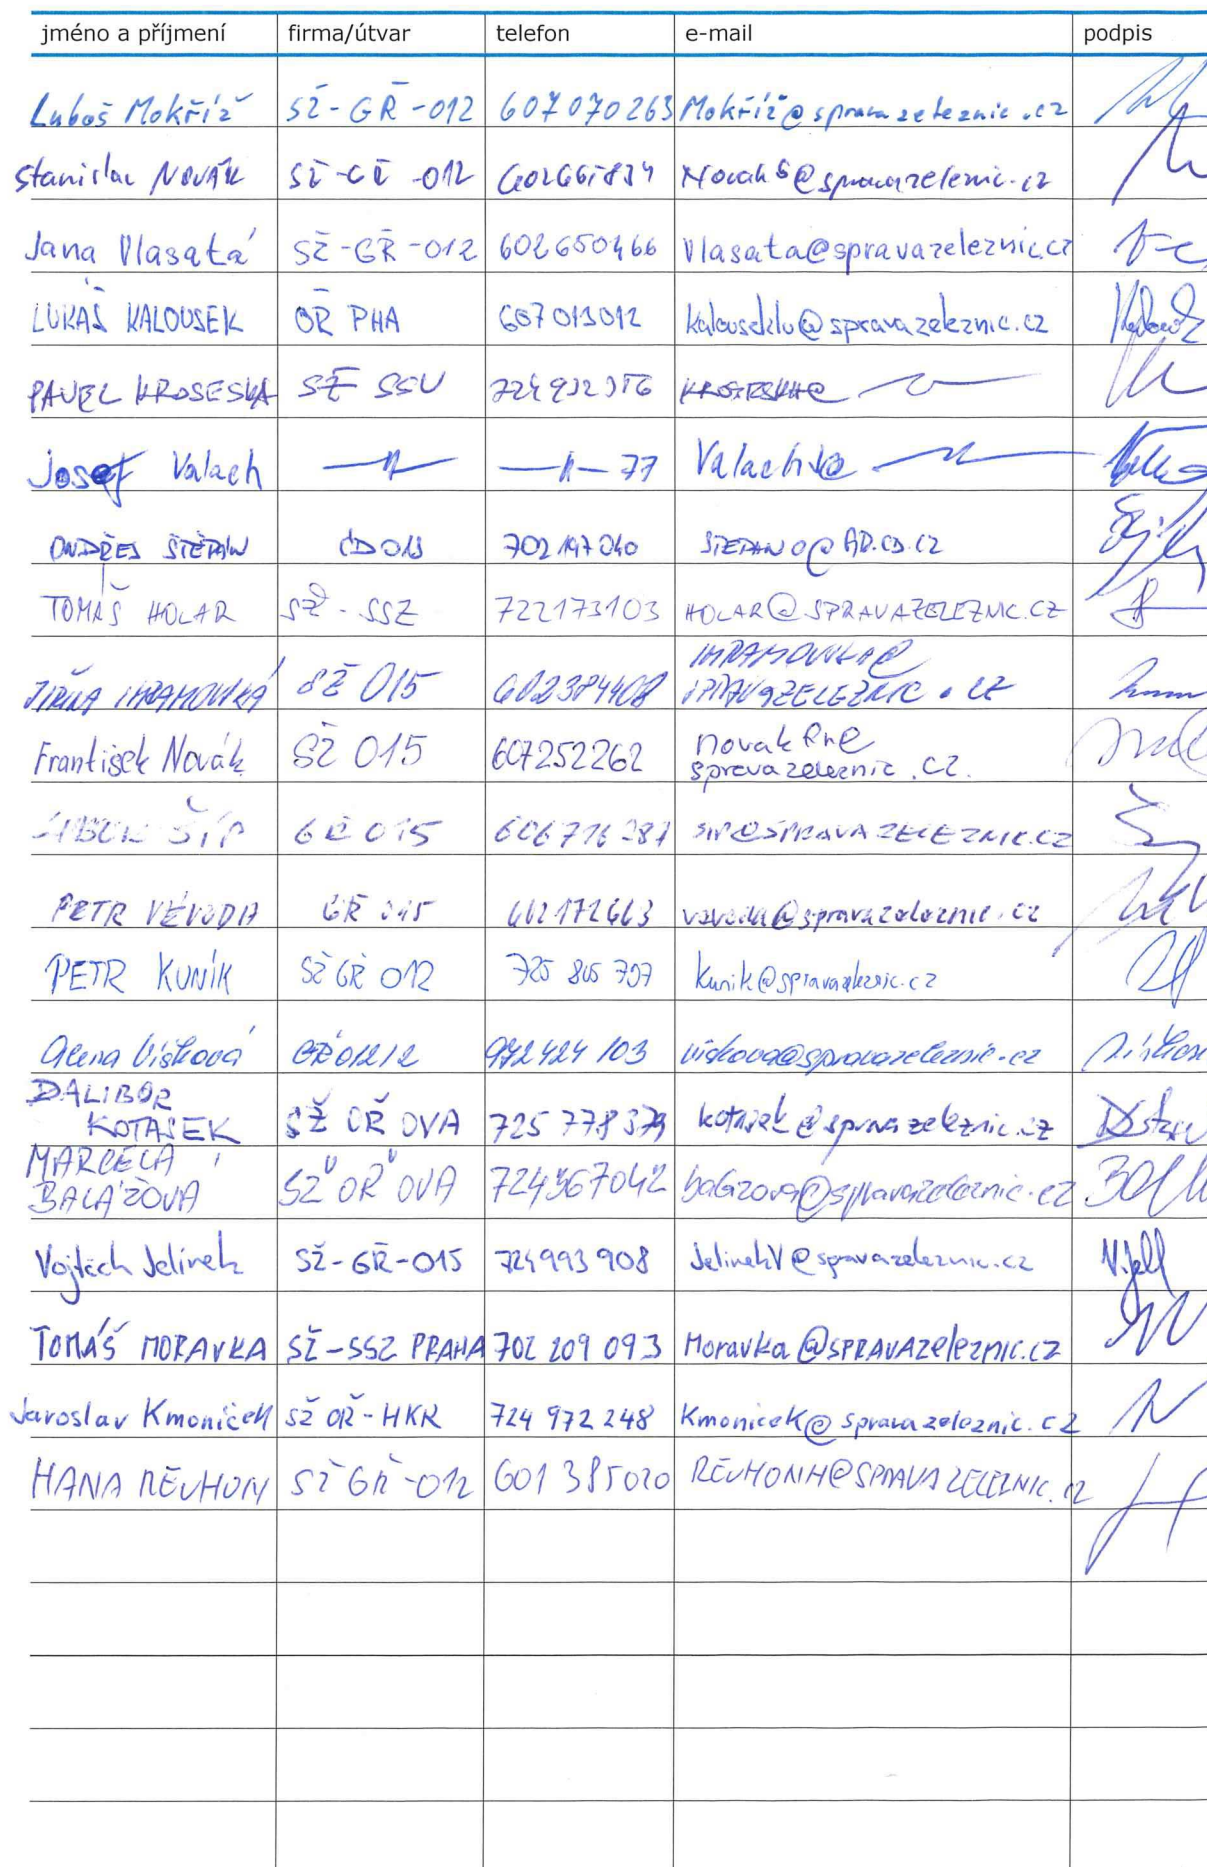 jméno a příjmení firma/útvar telefon e-mail podpis
Luboš Mokříž SŽ-GŘ-012 607070263 Mokříž@spravazeleznic.cz
Stanislav NOVÁK SŽ-GŘ-012 NovakS@spravazeleznic.cz
Jana Vlasatá SŽ-GŘ-012 602650466 Vlasata@spravazeleznic.cz
LUKÁŠ KALOUSEK OŘ PHA 607013012 kalouseklu@spravazeleznic.cz
PAVEL KROSESKA SŽ
Josef Valach —〃— —〃— 77 —〃—
ONDŘEJ ŠTĚPÁN 702 197 040 STEPANO@AD.CD.CZ
TOMÁŠ HOLAR SŽ - SSZ 722173103 HOLAR@SPRAVAZELEZNIC.CZ
SŽ 015 602384408
SPRAVAZELEZNIC.CZ
František Novák SŽ 015 607252262 novakfr@
spravazeleznic.cz.
ŠÍP GŘ 015 SIP@SPRAVAZELEZNIC.CZ
PETR VÉVODA GŘ 015 602172663 vevoda@spravazeleznic.cz
PETR KUNÍK SŽ GŘ 012 725 805 707 kunik@spravazeleznic.cz
Alena Víšková GŘ 012/2 972 424 103 viskova@spravazeleznic.cz
DALIBOR
KOTASEK SŽ OŘ OVA 725 778 379 kotasek@spravazeleznic.cz
MARCELA
BALÁŽOVÁ SŽ OŘ OVA 724367042 balazova@spravazeleznic.cz
Vojtěch Jelínek SŽ-GŘ-015 724993908 JelinekV@spravazeleznic.cz V. Jell
TOMÁŠ MORAVKA SŽ-SSZ PRAHA 702 209 093 Moravka@SPRAVAzeleznic.cz
Jaroslav Kmoníček SŽ OŘ-HKR 724 972 248 Kmonicek@spravazeleznic.cz
HANA SŽ GŘ-012 601 385020